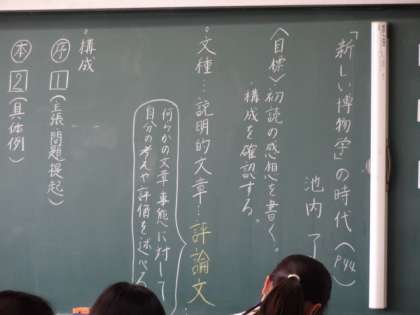 「新しい博物学」の時代（P44
池内 了
〈目標〉初読の感想を書く。
構成を確認する。
・文種…説明的文章…評論文
何らかの文章・事態に対して
自分の考えや評価を述べる
・構成
序 1（主張・問題提起）
本 2（具体例）